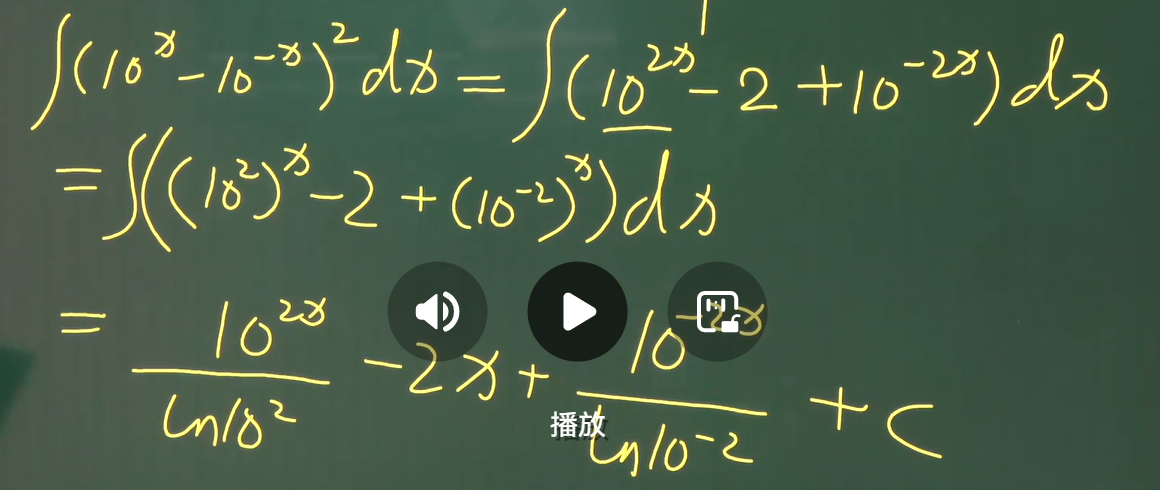 ∫(10^x - 10^-x)^2 dx = ∫(10^2x - 2 + 10^-2x) dx
= ∫((10^2)^x - 2 + (10^-2)^x) dx
= 10^2x / ln10^2 - 2x + 10^-2x / ln10^-2 + c
播放